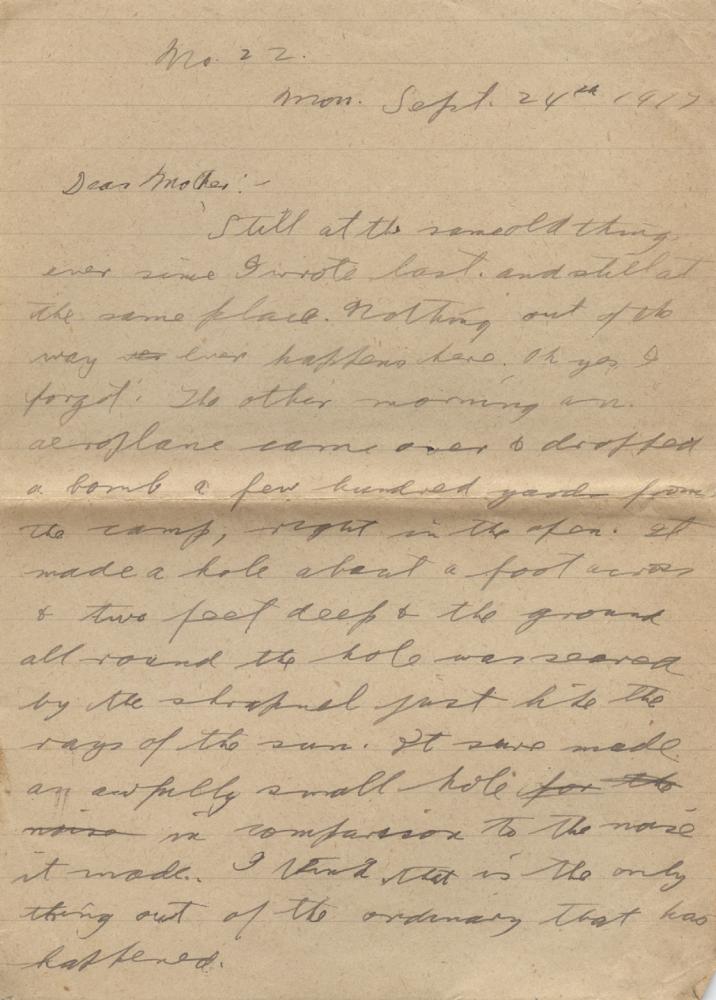 No. 22.
Mon. Sept. 24th 1917
Dear Mother:-
Still at the same old thing
ever since I wrote last. and still at
the same place. Nothing out of the
way ever happens here. Oh yes, I
forgot! The other morning an
aeroplane came over & dropped
a bomb a few hundred yards from
the camp, right in the open. It
made a hole about a foot across
& two feet deep & the ground
all round the hole was seared
by the shrapnel just like the
rays of the sun. It sure made
an awfully small hole for the
noise in comparison to the noise
it made. I think that is the only
thing out of the ordinary that has
happened.